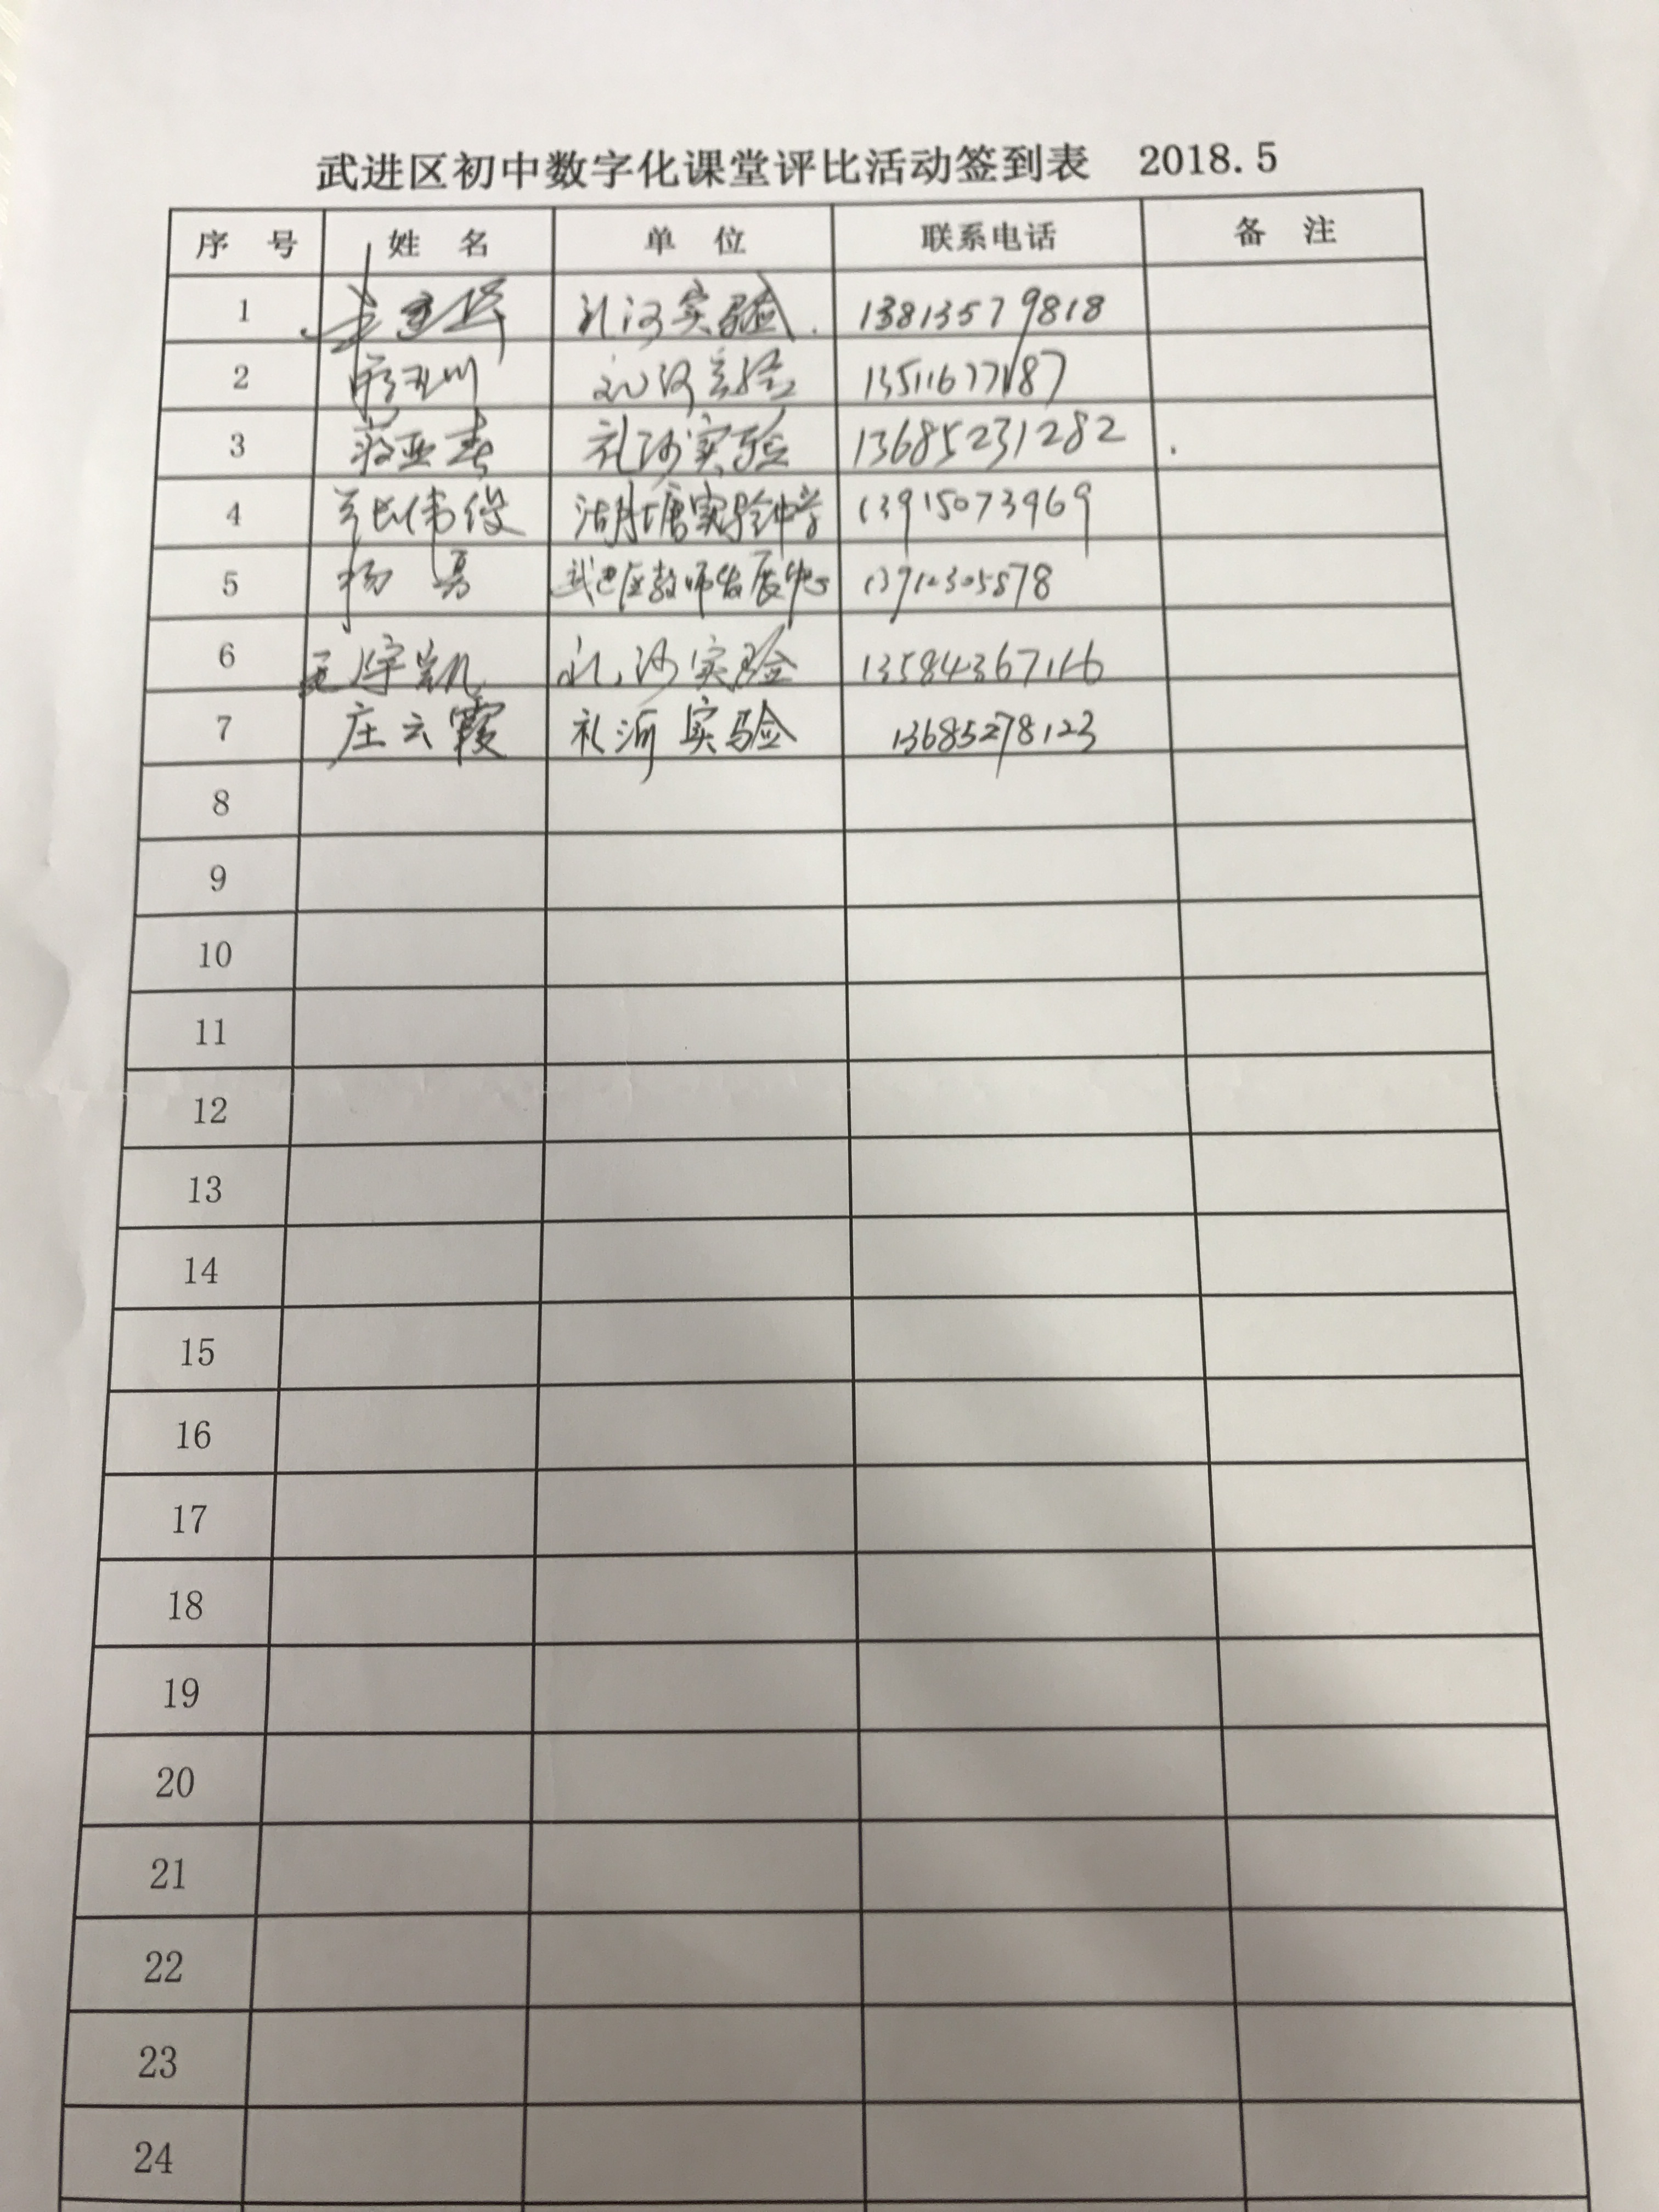 武进区初中数字化课堂评比活动签到表 2018.5
序号 姓名 单位 联系电话 备注
1 礼河实验. 13813579818
2 礼河实验 13511677187
3 蒋亚春 礼河实验 13685231282
4 张伟俊 湖塘实验中学 13915073969
5 杨勇 武进区教师发展中心 13912305878
6 礼河实验 13584367116
7 庄云霞 礼河实验 13685278123
8
9
10
11
12
13
14
15
16
17
18
19
20
21
22
23
24